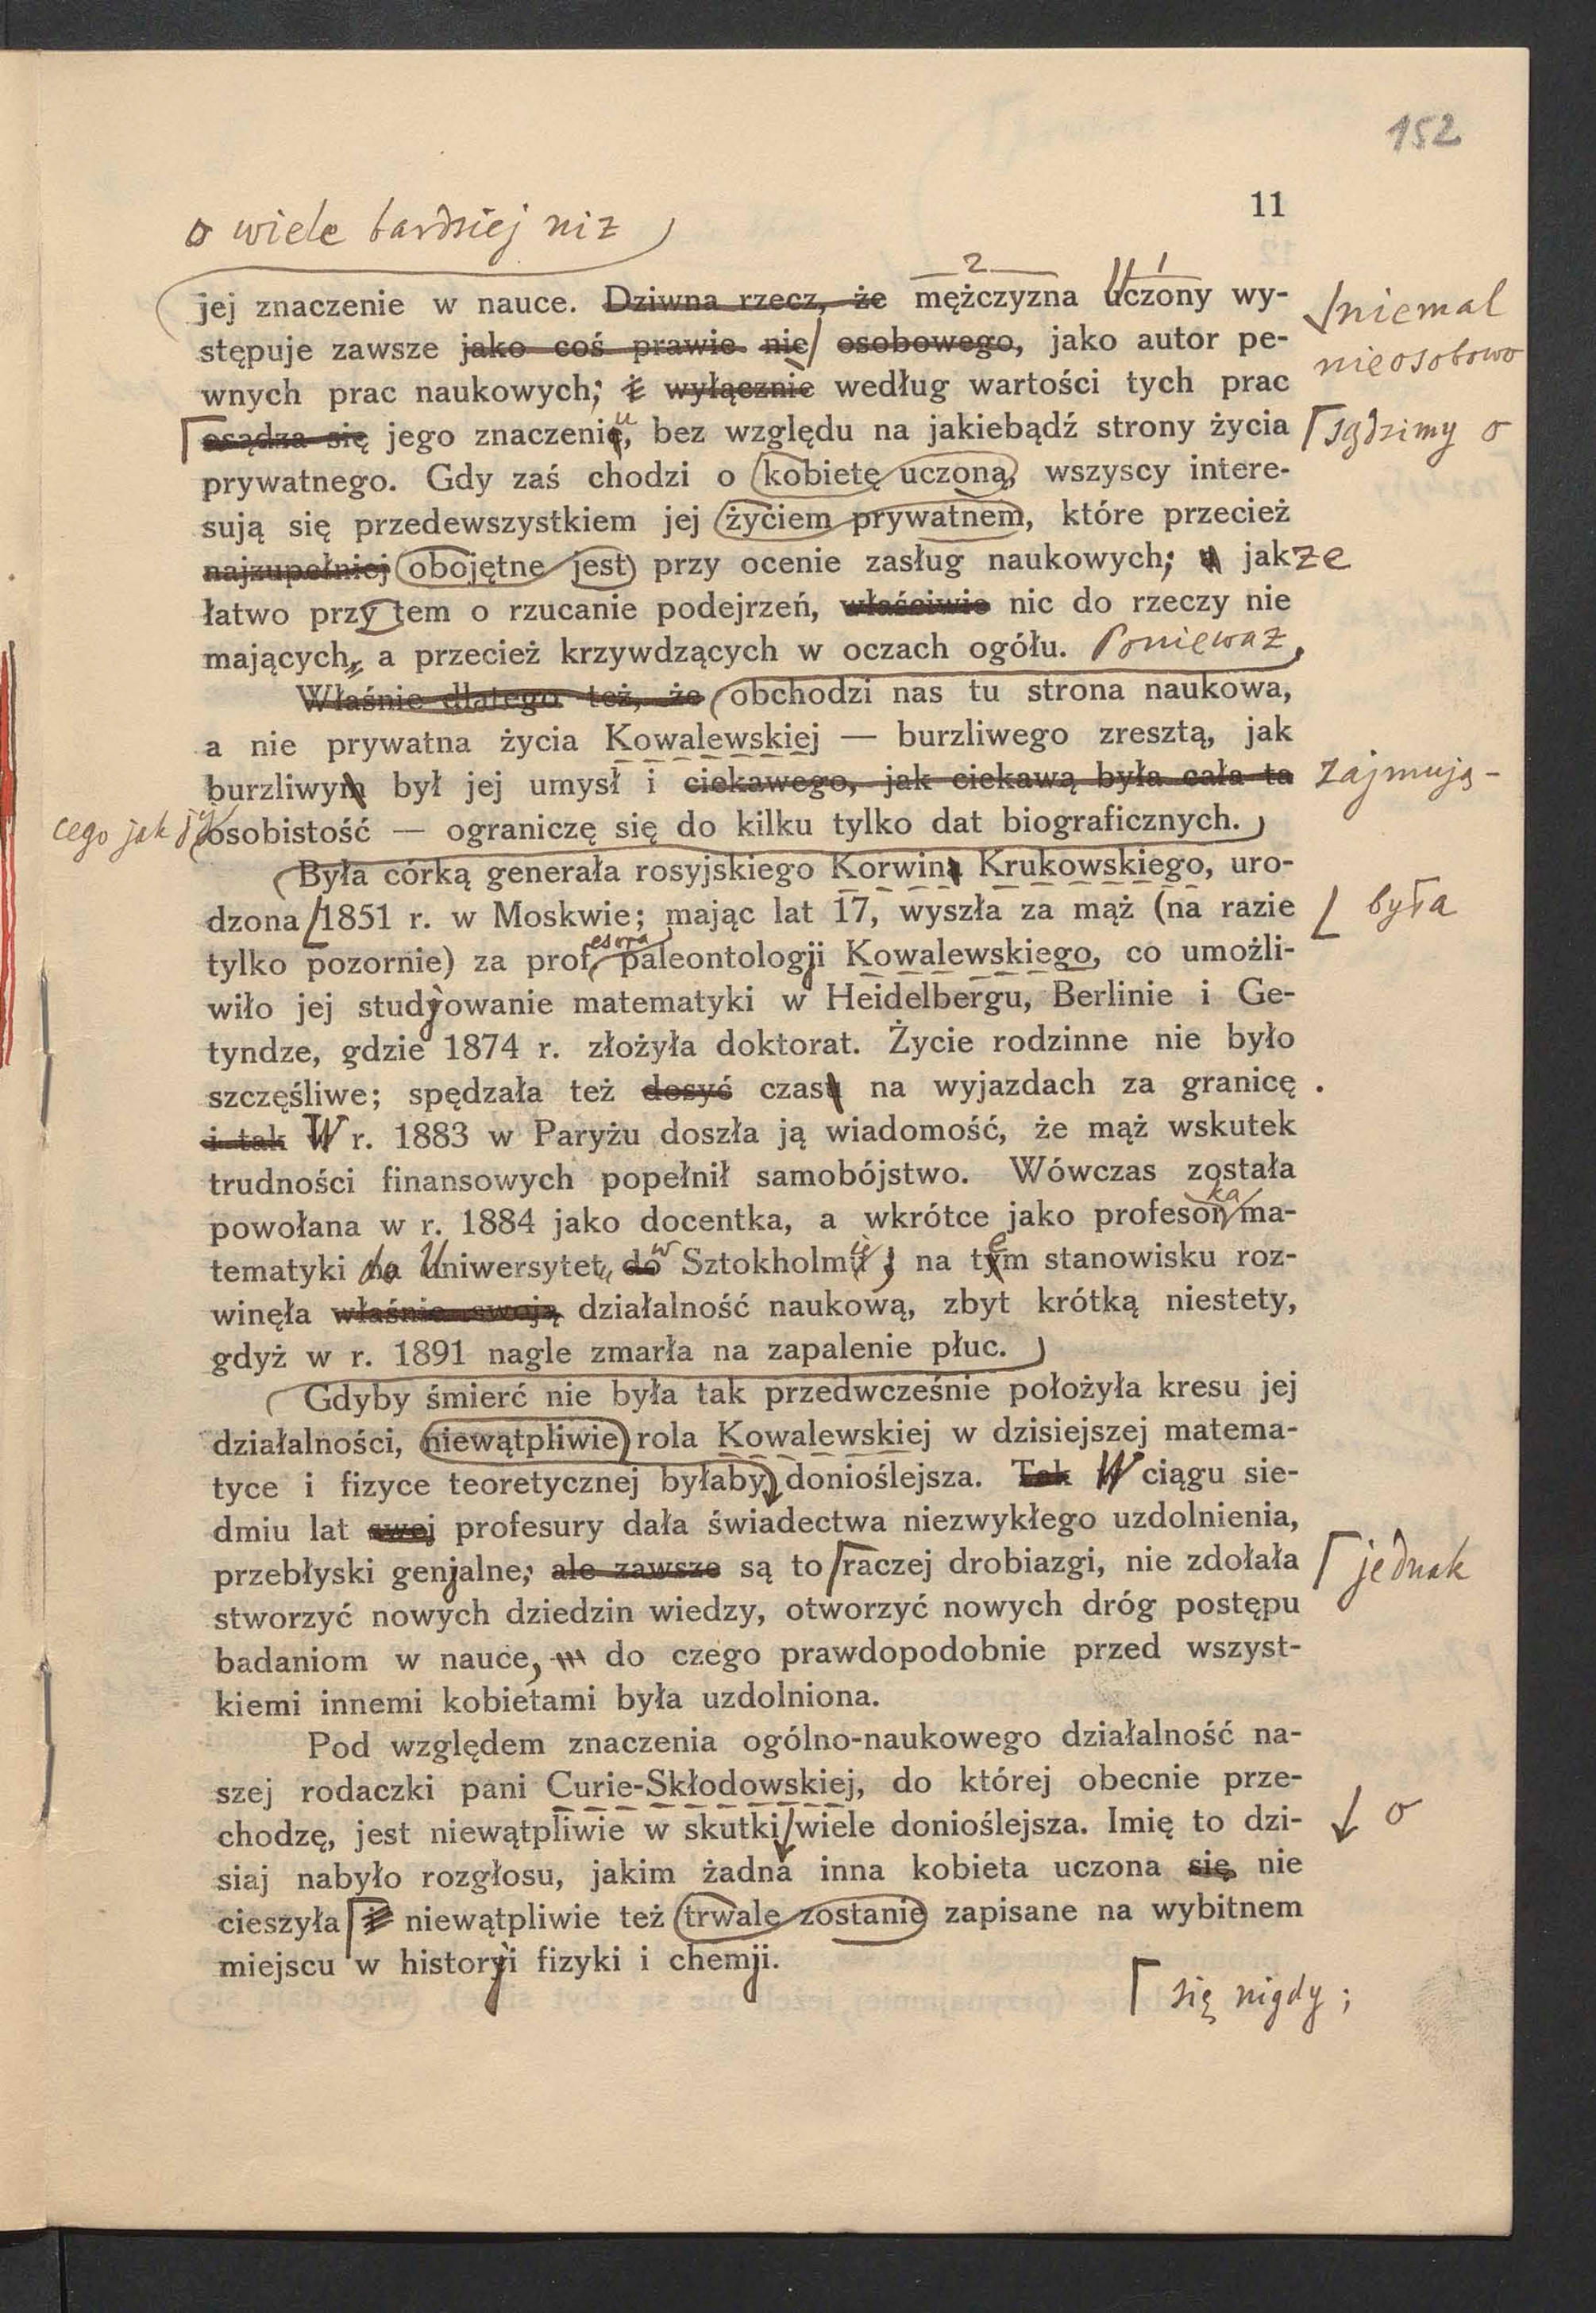 152
11
o wiele bardziej niż
jej znaczenie w nauce. Dziwna rzecz, że mężczyzna uczony wy-
2 1
niemal
stępuje zawsze jako coś prawie nie osobowego, jako autor pe-
nieosobowo
wnych prac naukowych; i wyłącznie według wartości tych prac
osądza się jego znaczenie, bez względu na jakiebądź strony życia
u
sądzimy o
prywatnego. Gdy zaś chodzi o kobietę uczoną, wszyscy intere-
sują się przedewszystkiem jej życiem prywatnem, które przecież
najzupełniej obojętne jest przy ocenie zasług naukowych; a jak że
łatwo przy tem o rzucanie podejrzeń, właściwie nic do rzeczy nie
mających, a przecież krzywdzących w oczach ogółu. Ponieważ
Właśnie dlatego też, że obchodzi nas tu strona naukowa,
a nie prywatna życia Kowalewskiej — burzliwego zresztą, jak
burzliwym był jej umysł i ciekawego, jak ciekawą była cała ta zajmują-
cego jak jej osobistość — ograniczę się do kilku tylko dat biograficznych.
Była córką generała rosyjskiego Korwina Krukowskiego, uro-
dzona 1851 r. w Moskwie; mając lat 17, wyszła za mąż (na razie była
esora
tylko pozornie) za prof. paleontologji Kowalewskiego, co umożli-
wiło jej studyowanie matematyki w Heidelbergu, Berlinie i Ge-
tyndze, gdzie 1874 r. złożyła doktorat. Życie rodzinne nie było
szczęśliwe; spędzała też dosyć czasu na wyjazdach za granicę .
i tak W r. 1883 w Paryżu doszła ją wiadomość, że mąż wskutek
trudności finansowych popełnił samobójstwo. Wówczas została
ka
powołana w r. 1884 jako docentka, a wkrótce jako profesor ma-
w ie e
tematyki na Uniwersytet do Sztokholmu; na tym stanowisku roz-
winęła właśnie swoją działalność naukową, zbyt krótką niestety,
gdyż w r. 1891 nagle zmarła na zapalenie płuc.
Gdyby śmierć nie była tak przedwcześnie położyła kresu jej
działalności, niewątpliwie rola Kowalewskiej w dzisiejszej matema-
tyce i fizyce teoretycznej byłaby donioślejsza. Tak W ciągu sie-
dmiu lat swej profesury dała świadectwa niezwykłego uzdolnienia,
przebłyski genjalne; ale zawsze są to raczej drobiazgi, nie zdołała jednak
stworzyć nowych dziedzin wiedzy, otworzyć nowych dróg postępu
badaniom w nauce, do czego prawdopodobnie przed wszyst-
kiemi innemi kobietami była uzdolniona.
Pod względem znaczenia ogólno-naukowego działalność na-
szej rodaczki pani Curie-Skłodowskiej, do której obecnie prze-
chodzę, jest niewątpliwie w skutki wiele donioślejsza. Imię to dzi- o
siaj nabyło rozgłosu, jakim żadna inna kobieta uczona się nie
cieszyła i niewątpliwie też trwale zostanie zapisane na wybitnem
miejscu w historyi fizyki i chemji.
się nigdy;